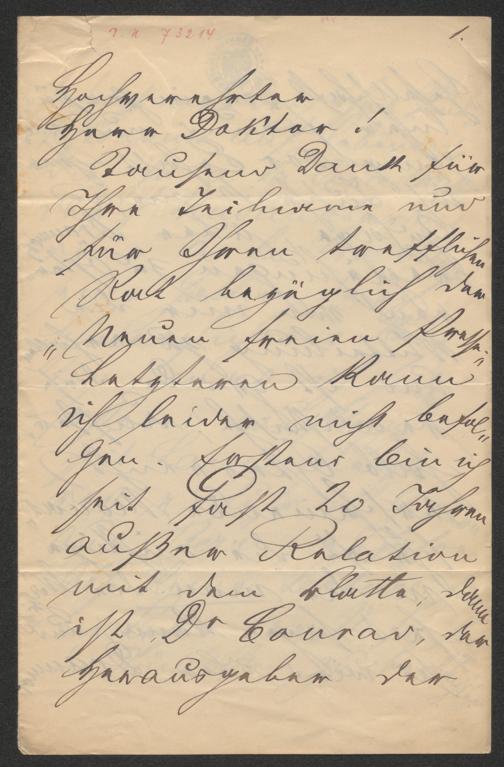 I. N. 73214
1.
Hochverehrter
Herr Doktor!
Tausend Dank für
Ihre Teilname und
für Ihren trefflichen
Rat bezüglich der
„Neuen freien Presse“
Letzteren kann
ich leider nicht befol„
gen. Erstens bin ich
seit fast 20 Jahren
außer Relation
mit dem Blatte, dann
ist Dr Conrad, der
Herausgeber der